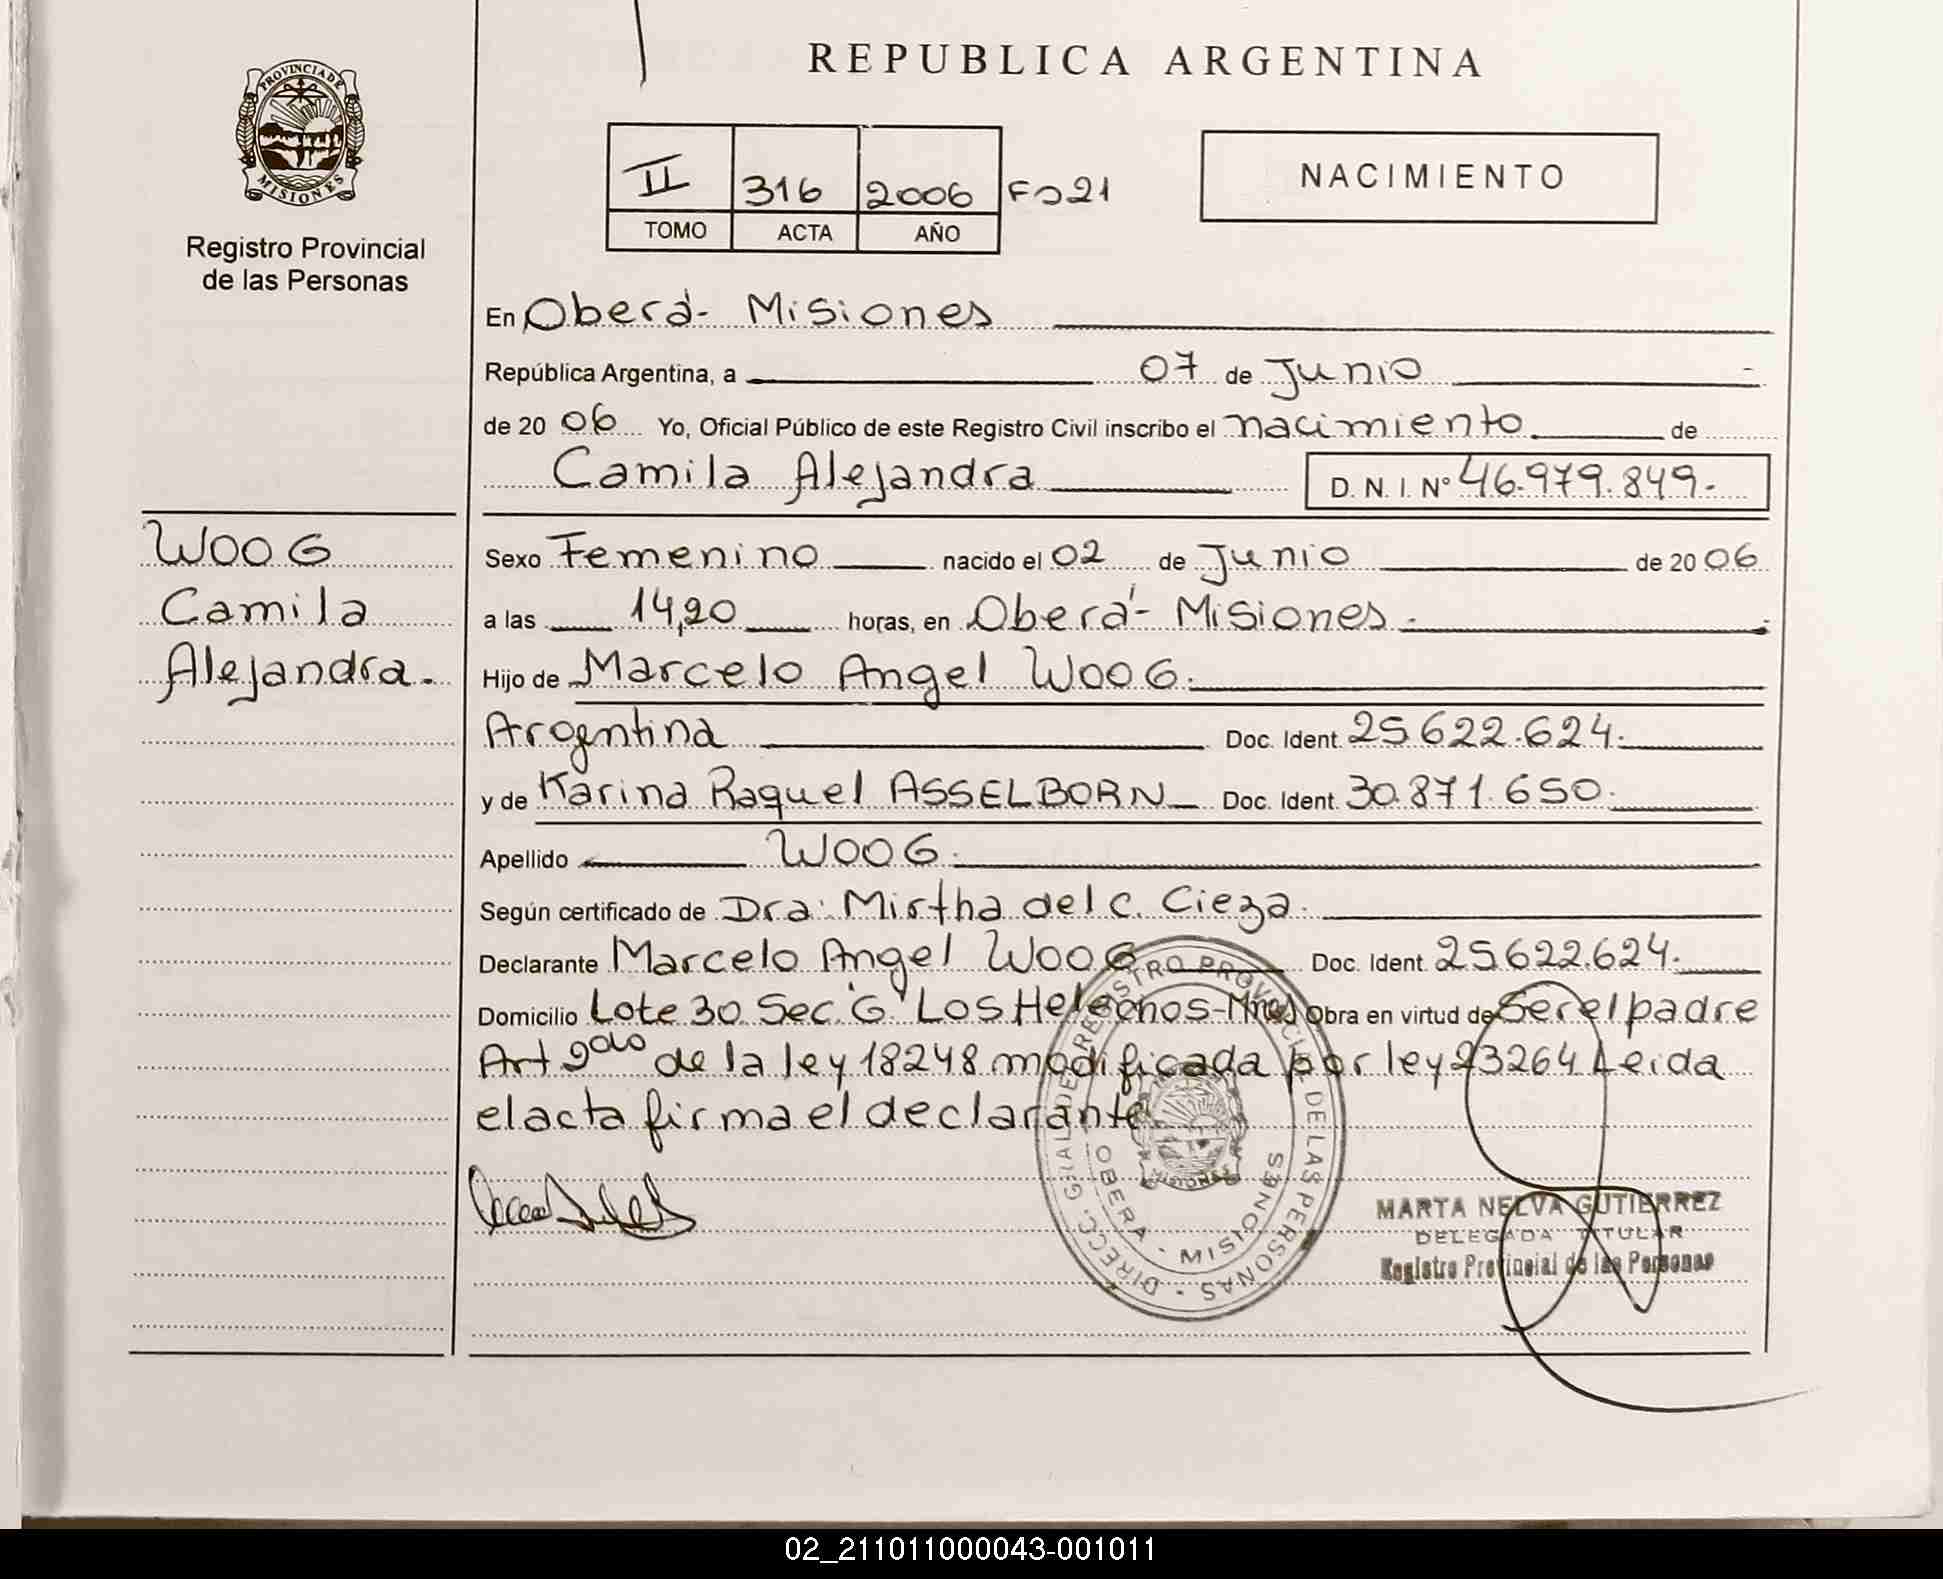 REPUBLICA ARGENTINA
PROVINCIA DE
MISIONES
Registro Provincial
de las Personas
II 316 2006 Fº 21
TOMO ACTA AÑO
NACIMIENTO
En Oberá- Misiones
República Argentina, a 07 de Junio
de 2006 Yo, Oficial Público de este Registro Civil inscribo el nacimiento de
Camila Alejandra D. N. I. Nº 46.979.849.-
WOOG
Camila
Alejandra.
Sexo Femenino nacido el 02 de Junio de 2006
a las 14,20 horas, en Oberá- Misiones.
Hijo de Marcelo Angel WOOG.
Argentina Doc. Ident. 25.622.624.
y de Karina Raquel ASSELBORN Doc. Ident. 30.871.650.
Apellido WOOG.
Según certificado de Dra: Mirtha del C. Cieza.
Declarante Marcelo Angel WOOG Doc. Ident. 25.622.624.
Domicilio Lote 30 Sec. "G" Los Helechos-Mnes Obra en virtud de Ser el padre
Art 2do de la ley 18248 modificada por ley 23264 Leida
el acta firma el declarante
DIRECC. GRAL. DE REGISTRO PROVINCIAL DE LAS PERSONAS
OBERA - MISIONES
MISIONES
MARTA NELVA GUTIERREZ
DELEGADA TITULAR
Registro Provincial de las Personas
02_211011000043-001011